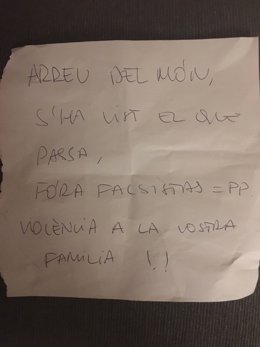 ARREU DEL MÓN,
S'HA VIST EL QUE
PASSA,
FÒRA FALSISTAS = PP
VIOLÈNCIA A LA VOSTRA
FAMILIA !!